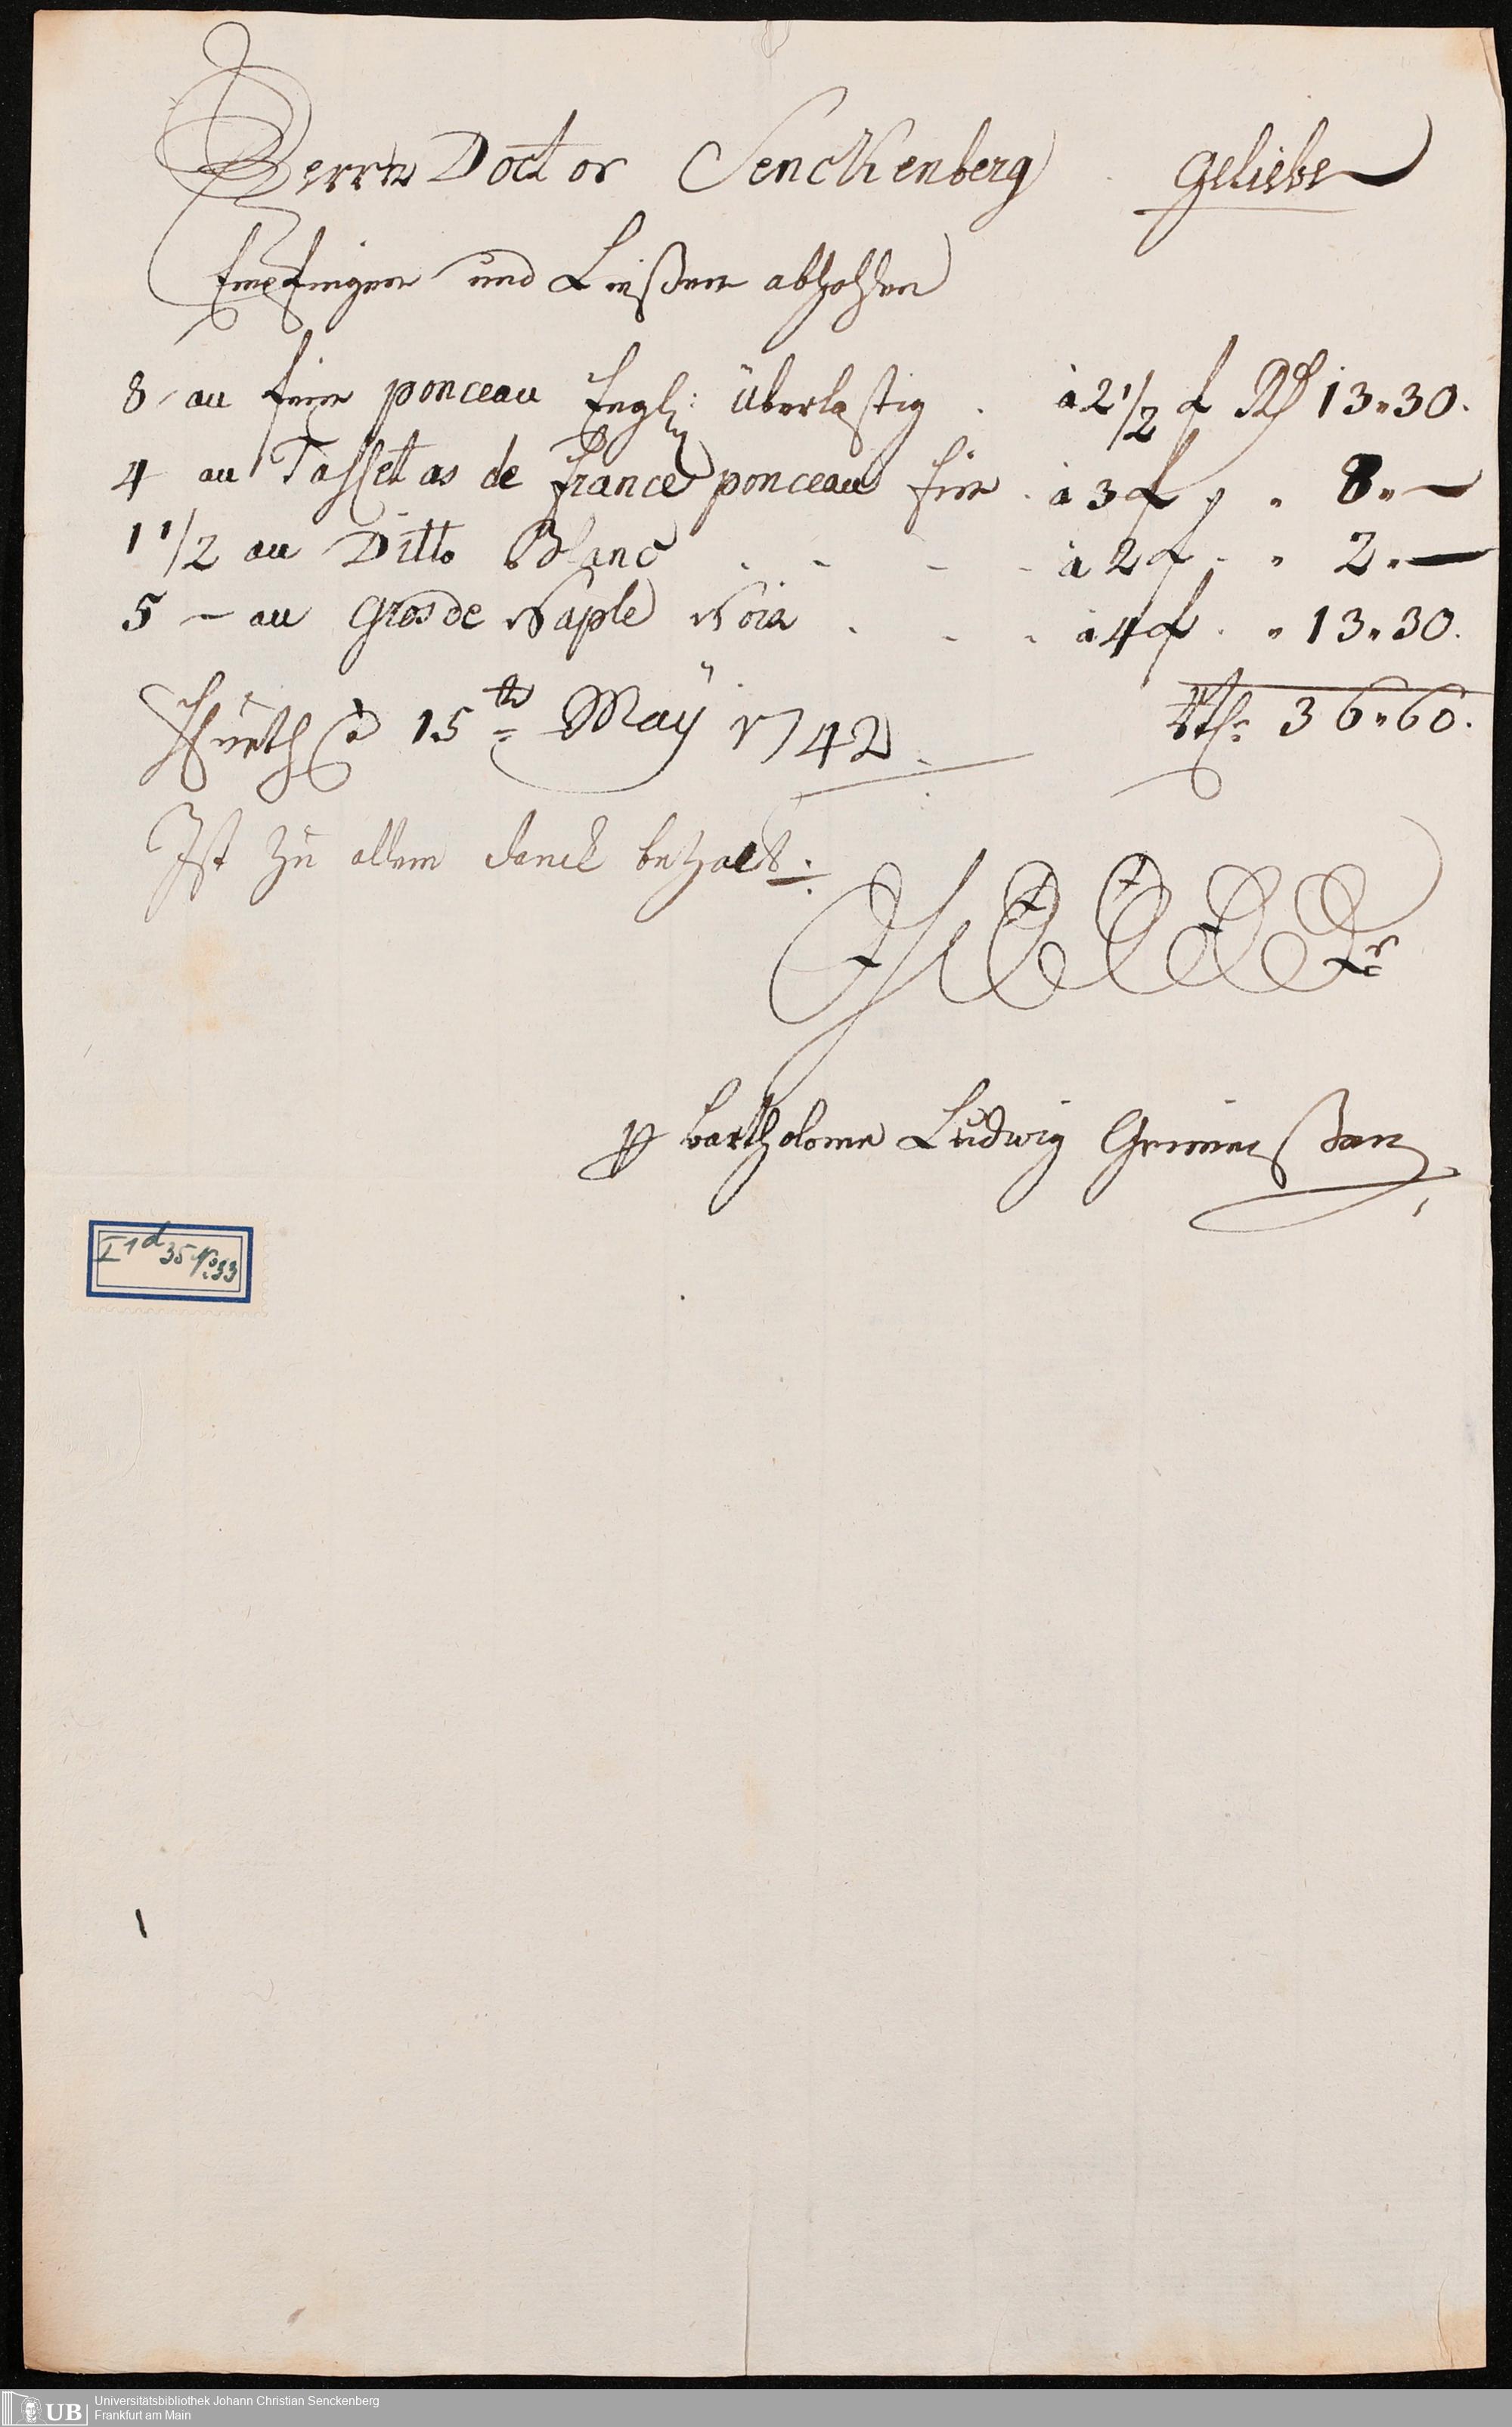 Herrn Doctor Senckenberg geliebe
Empfingen und Ließen abhohlen
8 - au fein ponceau Engl: überlastig . à 2 1/2 f Rth 13 " 30 .
4 au Taffetas de france ponceau fin . à 3 f " 8 " —
1 1/2 au Ditto Blanc . - - - à 2 f - " 2 " —
5 - au gros de Naple Noir . - - à 4 f . " 13 " 30 .
15 May 1742 Rth: 36 " 60 .
Ist zu allem danck bezalt
p Bartholome Ludwig
I 1d 35 No. 33
UB Universitätsbibliothek Johann Christian Senckenberg
Frankfurt am Main